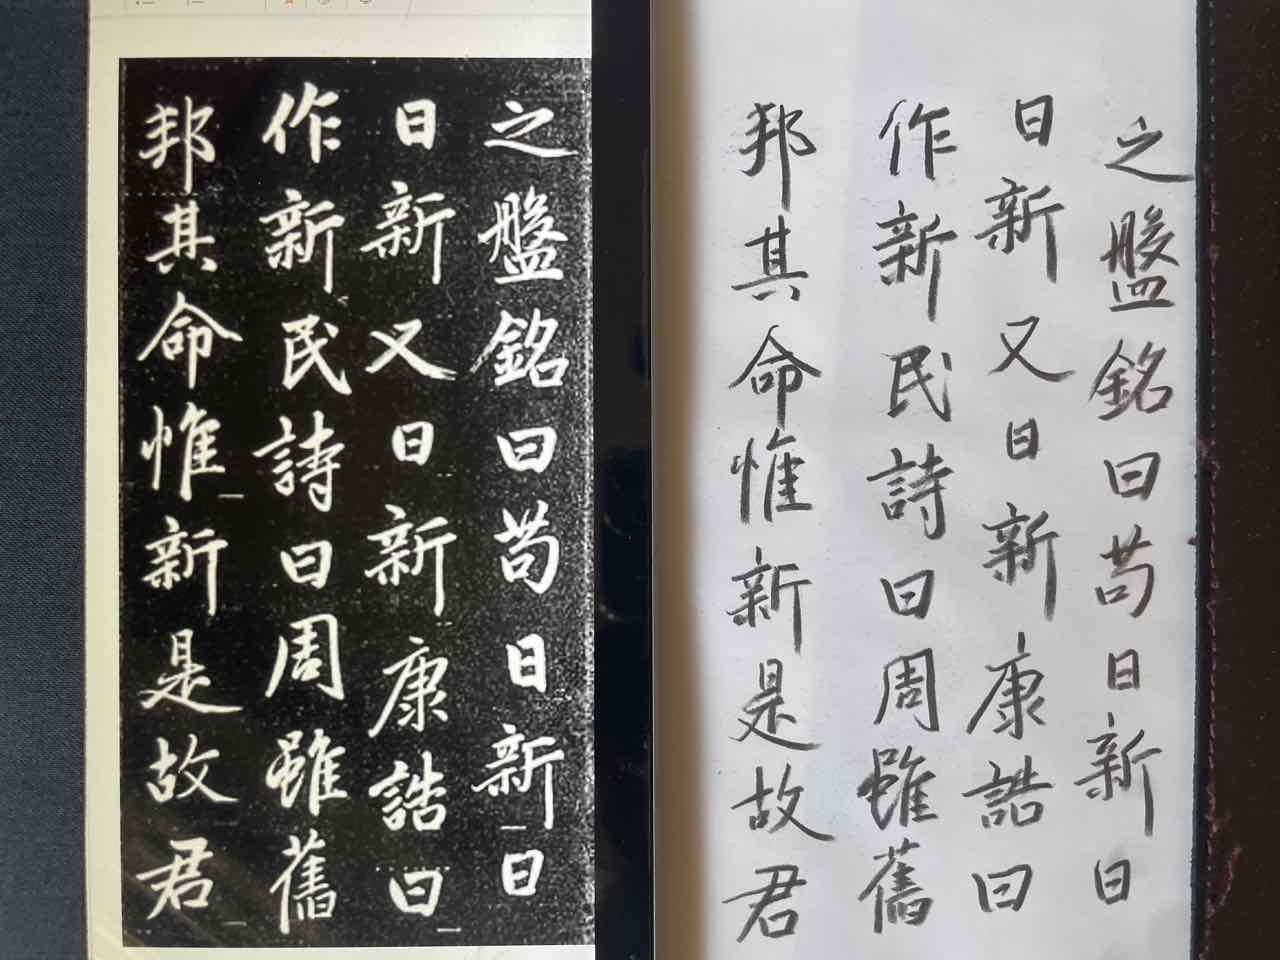 之盤銘曰苟日新日
日新又日新康誥曰
作新民詩曰周雖舊
邦其命惟新是故君
之盤銘曰苟日新日
日新又日新康誥曰
作新民詩曰周雖舊
邦其命惟新是故君